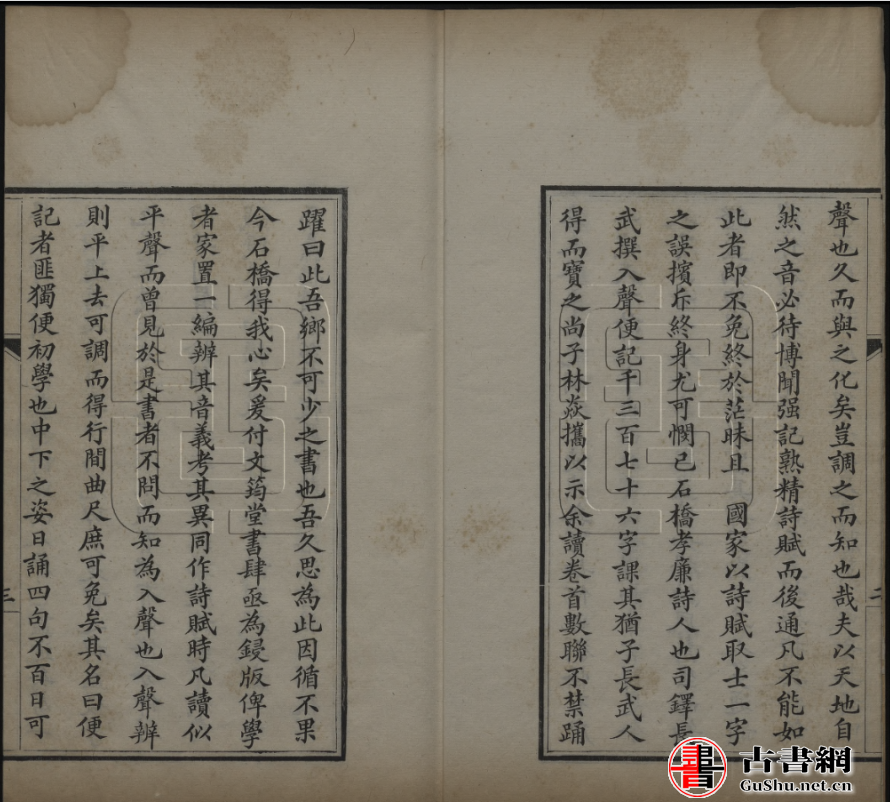 聲也久而與之化矣豈調之而知也哉夫以天地自
然之音必待博聞强記熟精詩賦而後通凡不能如
此者即不免終於茫昧且 國家以詩賦取士一字
之誤擯斥終身尤可憫已石橋孝廉詩人也司鐸長
武撰入聲便記千三百七十六字課其猶子長武人
得而寶之尚子林焱攜以示余讀卷首數聯不禁踊
二
躍曰此吾鄉不可少之書也吾久思為此因循不果
今石橋得我心矣爰付文筠堂書肆亟為鋟版俾學
者家置一編辨其音義考其異同作詩賦時凡讀似
平聲而曾見於是書者不問而知為入聲也入聲辨
則平上去可調而得行間曲尺庶可免矣其名曰便
記者匪獨便初學也中下之姿日誦四句不百日可
三
書 古書網
GuShu.net.cn